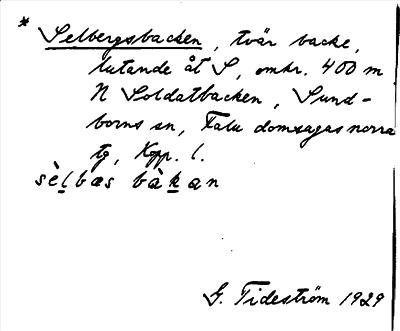 * Selbergsbacken, tvär backe,
lutande åt S, omkr. 400 m
N Soldatbacken, Sund-
borns sn, Falu domsagas norra
tg, Kopp. l.
sèl̲bæs bàk̲an
G. Tideström 1929